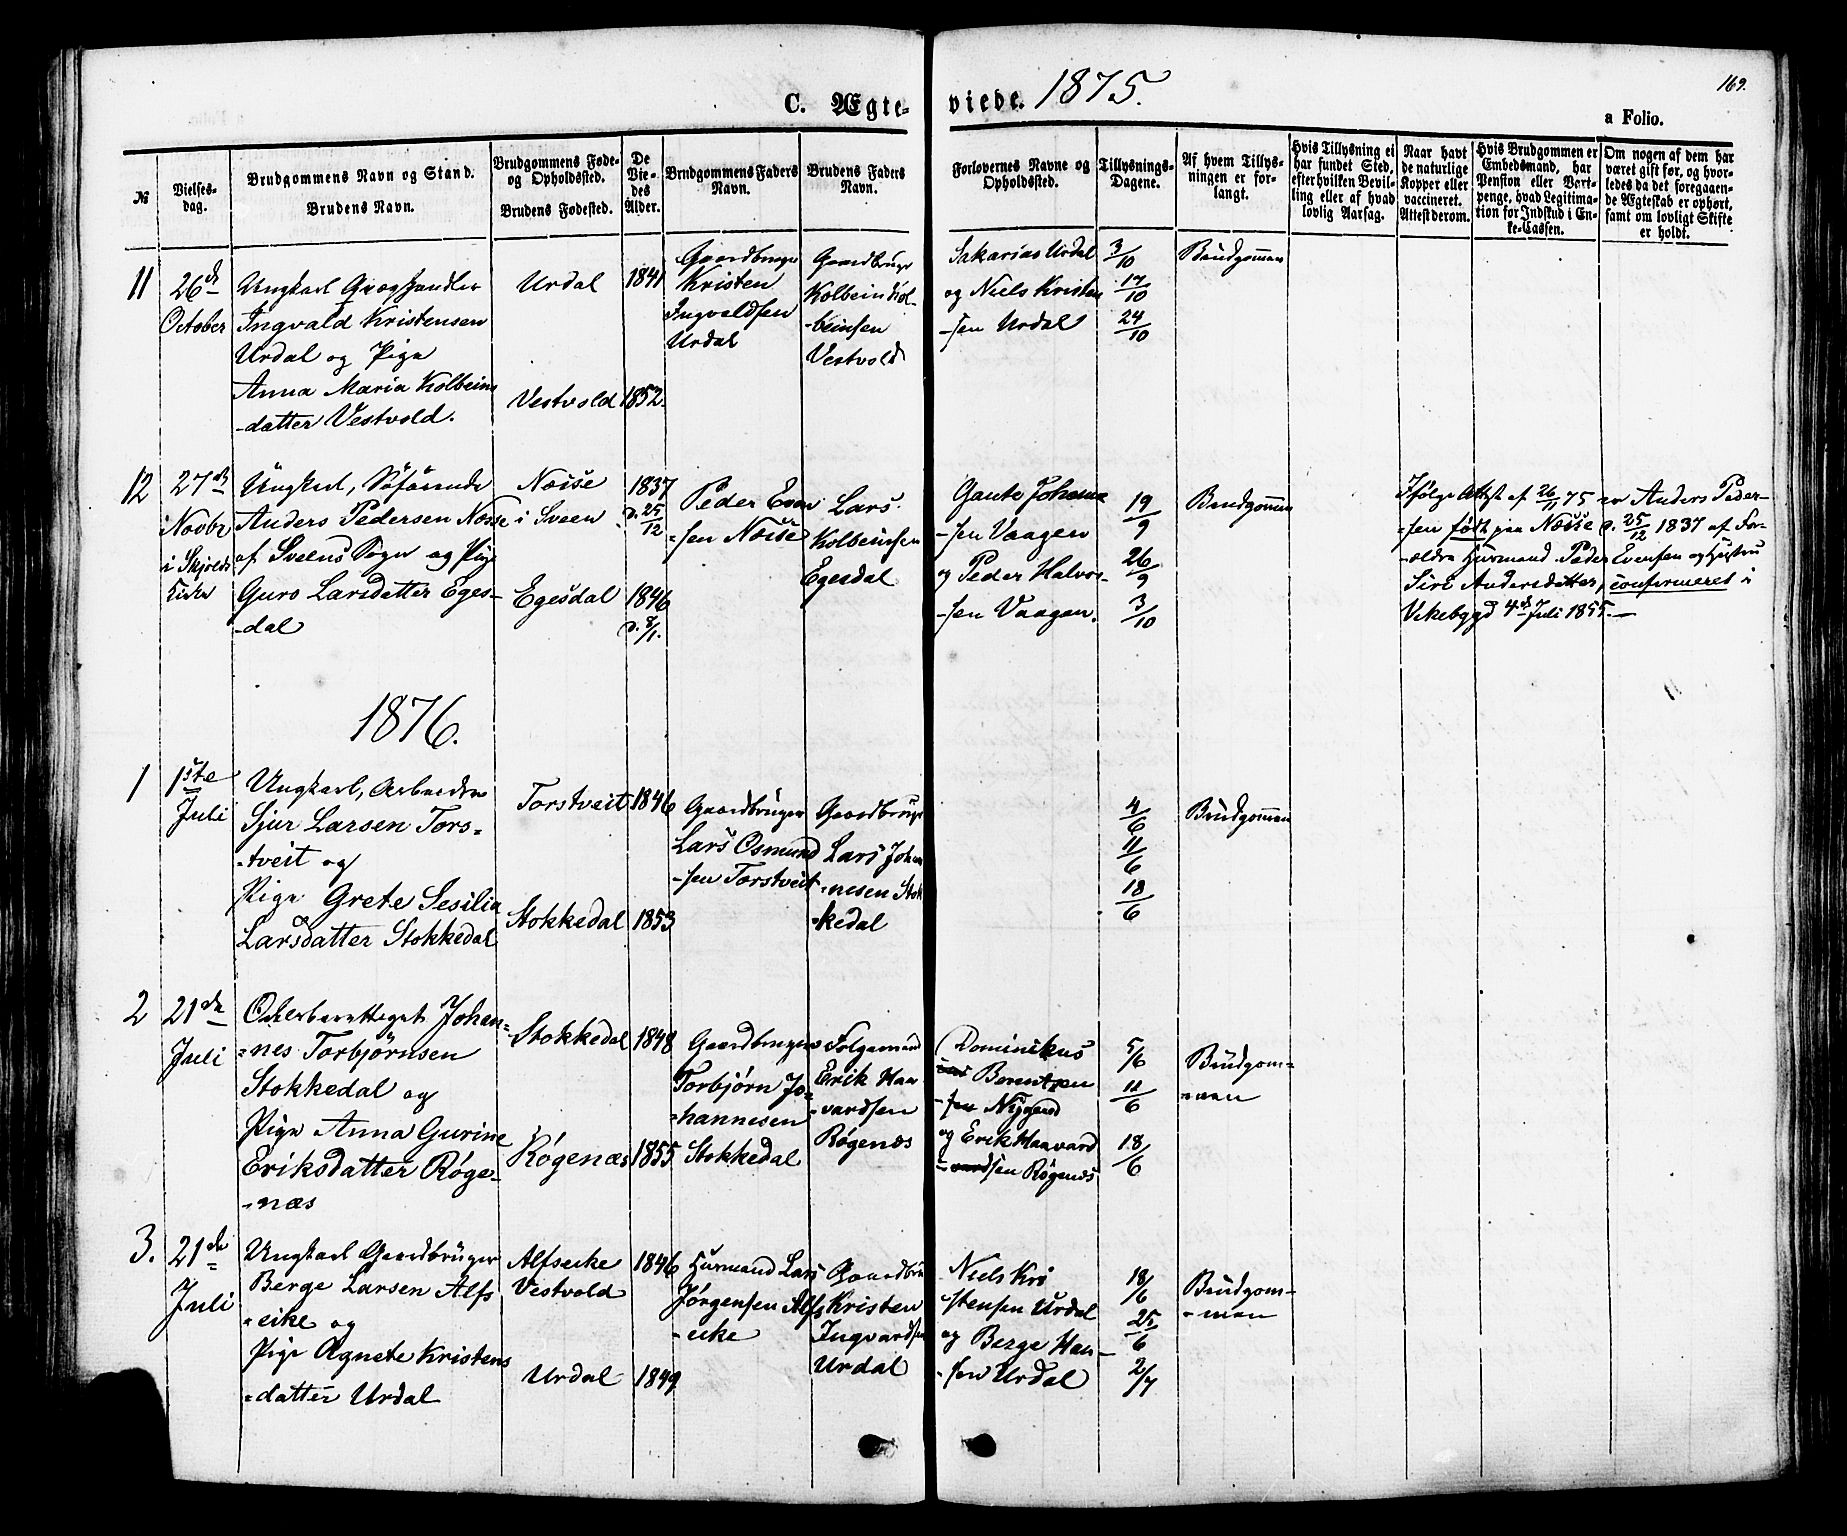 169.
C. Ægte-
viede. 1875.
a Folio.
№
Vielses-
dag.
Brudgommens Navn og Stand.
Brudens Navn.
Brudgommens Føde-
og Opholdssted.
Brudens Fødested.
De
Vie-
des
Alder.
Brudgommens Faders
Navn.
Brudens Faders
Navn.
Forlovernes Navne og
Opholdssted.
Tillysnings-
Dagene.
Af hvem Tillys-
ningen er for-
langt.
Hvis Tillysning ei
har fundet Sted,
efter hvilken Bevil-
ling eller af hvad
lovlig Aarsag.
Naar havt
de naturlige
Kopper eller
vaccineret.
Attest derom.
Hvis Brudgommen er
Embedsmand, har
Pension eller Vart-
penge, hvad Legitima-
tion for Indskud i En-
ke-Cassen.
Om nogen af dem har
været gift før, og hvor-
ledes da det foregaaen-
de Ægteskab er ophørt,
samt om lovligt Skifte
er holdt.
11
26de
October
Ungkarl Qvæghandler
Ingvald Kristensen
Urdal og Pige
Anna Maria Kolbeins
-datter Vestvold.
Urdal
Vestvold
1841
1852.
Gaardbruger
Kristen
Ingvaldsen
Urdal
Gaardbruger
Kolbein Kol-
-beinsen
Vestvold
Sakarias Urdal
og Niels Kristen
-sen Urdal
3/10
17/10
24/10
Brudgommen
12
27de
Novbr
i Skjolds
Kirke
Ungkarl, Söfarende
Anders Pedersen Næsse
af Sveens Sogn og Pige
Guro Larsdatter Eges-
-dal
Næise
i Sveen
Egesdal
1837
d. 25/12
1846
d. 8/1.
Peder Even
-sen Næise
Lars
Kolbeinsen
Egesdal
Gaute Johanne
-sen Vaagen
og Peder Halvor-
-sen Vaagen.
19/9
26/9
3/10
Brudgommen
Ifølge Attest af 26/11 75 er Anders Peder-
-sen født paa Næise d. 25/12 1837 af For-
-ældre Husmand Peder Evensen og Hustru
Siri Andersdatter, confirmeret i
Vikebygd 4de Juli 1855.—
1876.
1
1ste
Juli
Ungkarl, Arbeider
Sjur Larsen Tors-
-tveit og
Pige Grete Sesilia
Larsdatter Stokkedal
Torstveit
Stokkedal
1846
1853
Gaardbruger
Lars Osmund
-sen Torstveit
Gaardbruger
Lars Johan
-nesen Stok
-kedal
4/6
11/6
18/6
Brudgommen
2
21de
Juli
Johan-
-nes Torbjørnsen
Stokkedal og
Pige Anna Gurine
Eriksdatter Røge-
-næs
Stokkedal
Røgenæs
1848
1855
Gaardbruger
Torbjørn Jo-
-hannesen
Stokkedal
Folgemand
Erik Haa
-vardsen
Røgenæs
Dominikus
Berentsen
Nygaard
og Erik Haavard
-sen Røgenæs
5/6
11/6
18/6
Brudgom-
-men
3.
21de
Juli
Ungkarl Gaardbrüger
Berge Larsen Alfs
-eike og
Pige Agnete Kristens
-datter Urdal
Alfseike
Vestvold
Urdal
1846
1849
Husmand Lars
Jørgensen Alfs
-eike
Gaardbru
Kristen
Ingvardsen
Urdal
Niels Kri
stensen Urdal
og Berge Han-
-sen Urdal
18/6
25/6
2/7
Brudgom-
-men